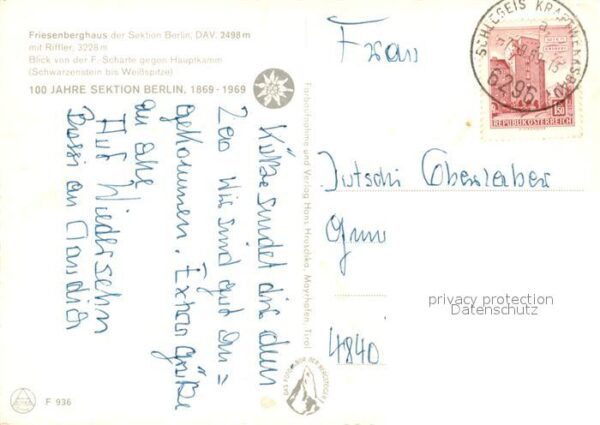 Friesenberghaus der Sektion Berlin, DAV. 2498 m
mit Riffler, 3228 m
Blick von der F.-Scharte gegen Hauptkamm
(Schwarzenstein bis Weißspitze)
100 JAHRE SEKTION BERLIN, 1869 - 1969
Küße sendet dir dein
Wir sind gut an=
gekommen. Extra Grüße
an alle
Auf Wiedersehn
Bussi an Claudia
Farbaufnahme und Verlag Hans Hruschka, Mayrhofen, Tirol
F 936
SCHLEGEIS KRAFTWERKSBAU
6296
1.50
REPUBLIK ÖSTERREICH
Frau
Jutschi
4840
privacy protection
Datenschutz